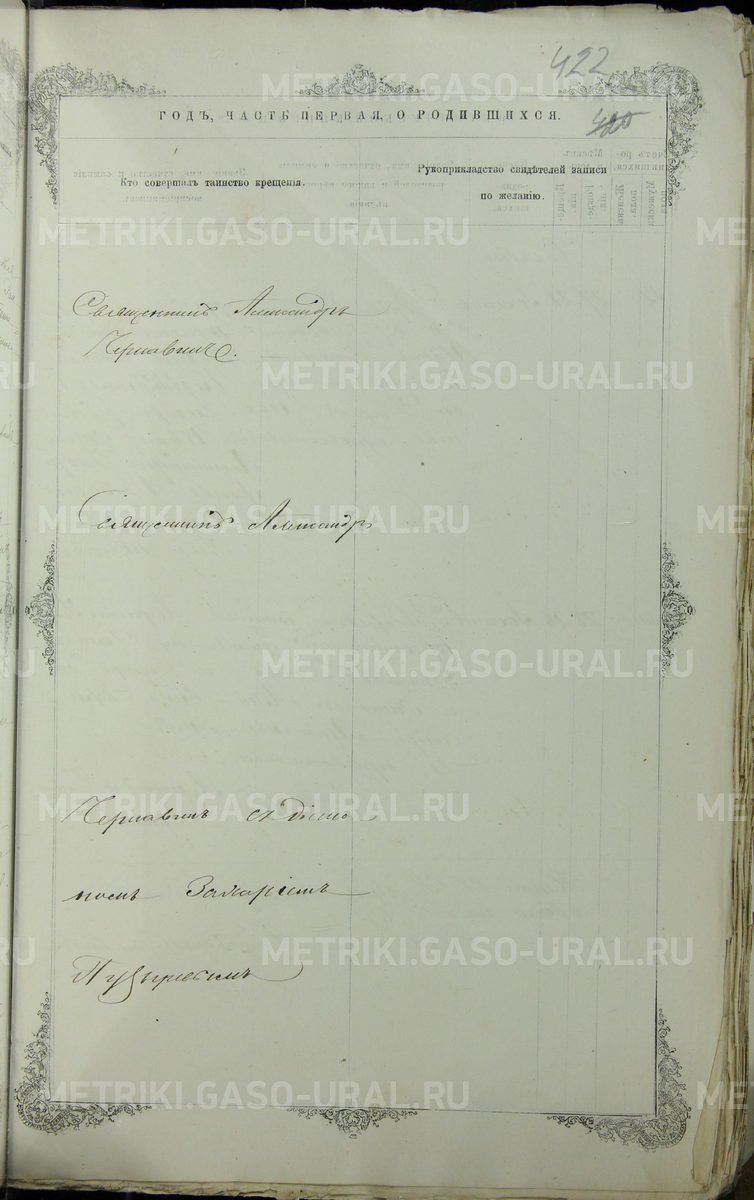 422
420
ГОДЪ, ЧАСТЬ ПЕРВАЯ, О РОДИВШИХСЯ.
Кто совершалъ таинство крещенія.
Рукоприкладство свидѣтелей записи
по желанію.
Священникъ Александръ
Чернавинъ.
Священникъ Александръ
Чернавинъ съ діако
номъ Захаріемъ
Пузыревымъ
METRIKI.GASO-URAL.RU